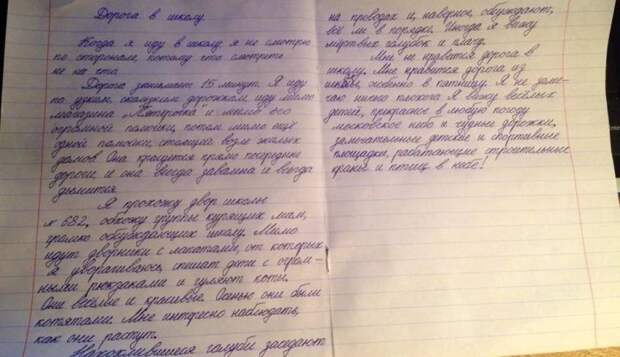 Дорога в школу.
Когда я иду в школу, я не смотрю
по сторонам, потому что смотреть
не на что.
Дорога занимает 15 минут. Я иду
по узким, скользким дорожкам, иду мимо
магазина "Пятёрочка" и мимо его
огромной помойки, потом мимо ещё
одной помойки, стоящей возле жилых
домов. Она кращется прямо посередине
дороги и она всегда завалена и всегда
дымится.
Я прохожу двор школы
№ 682, обхожу группы курящих мам,
громко обсуждающих школу. Мимо
идут дворники с лопатами, от которых
я уворачиваюсь, спешат дети с огром-
ными рюкзаками и гуляют коты.
Они весёлые и красивые. Осенью они были
котятами. Мне интересно наблюдать,
как они растут.
Нахохлившиеся голуби заседают
на проводах и, наверное, обсуждают,
всё ли в порядке. Иногда я вижу
мёртвых голубок и плачу.
Мне не нравится дорога в
школу. Мне нравится дорога из
школы, особенно в пятницу. Я не заме-
чаю ничего плохого. Я вижу весёлых
детей, прекрасное в любую погоду
московское небо и чудные дорожки,
замечательные детские и спортивные
площадки, работающие строительные
краны и птиц в небе!